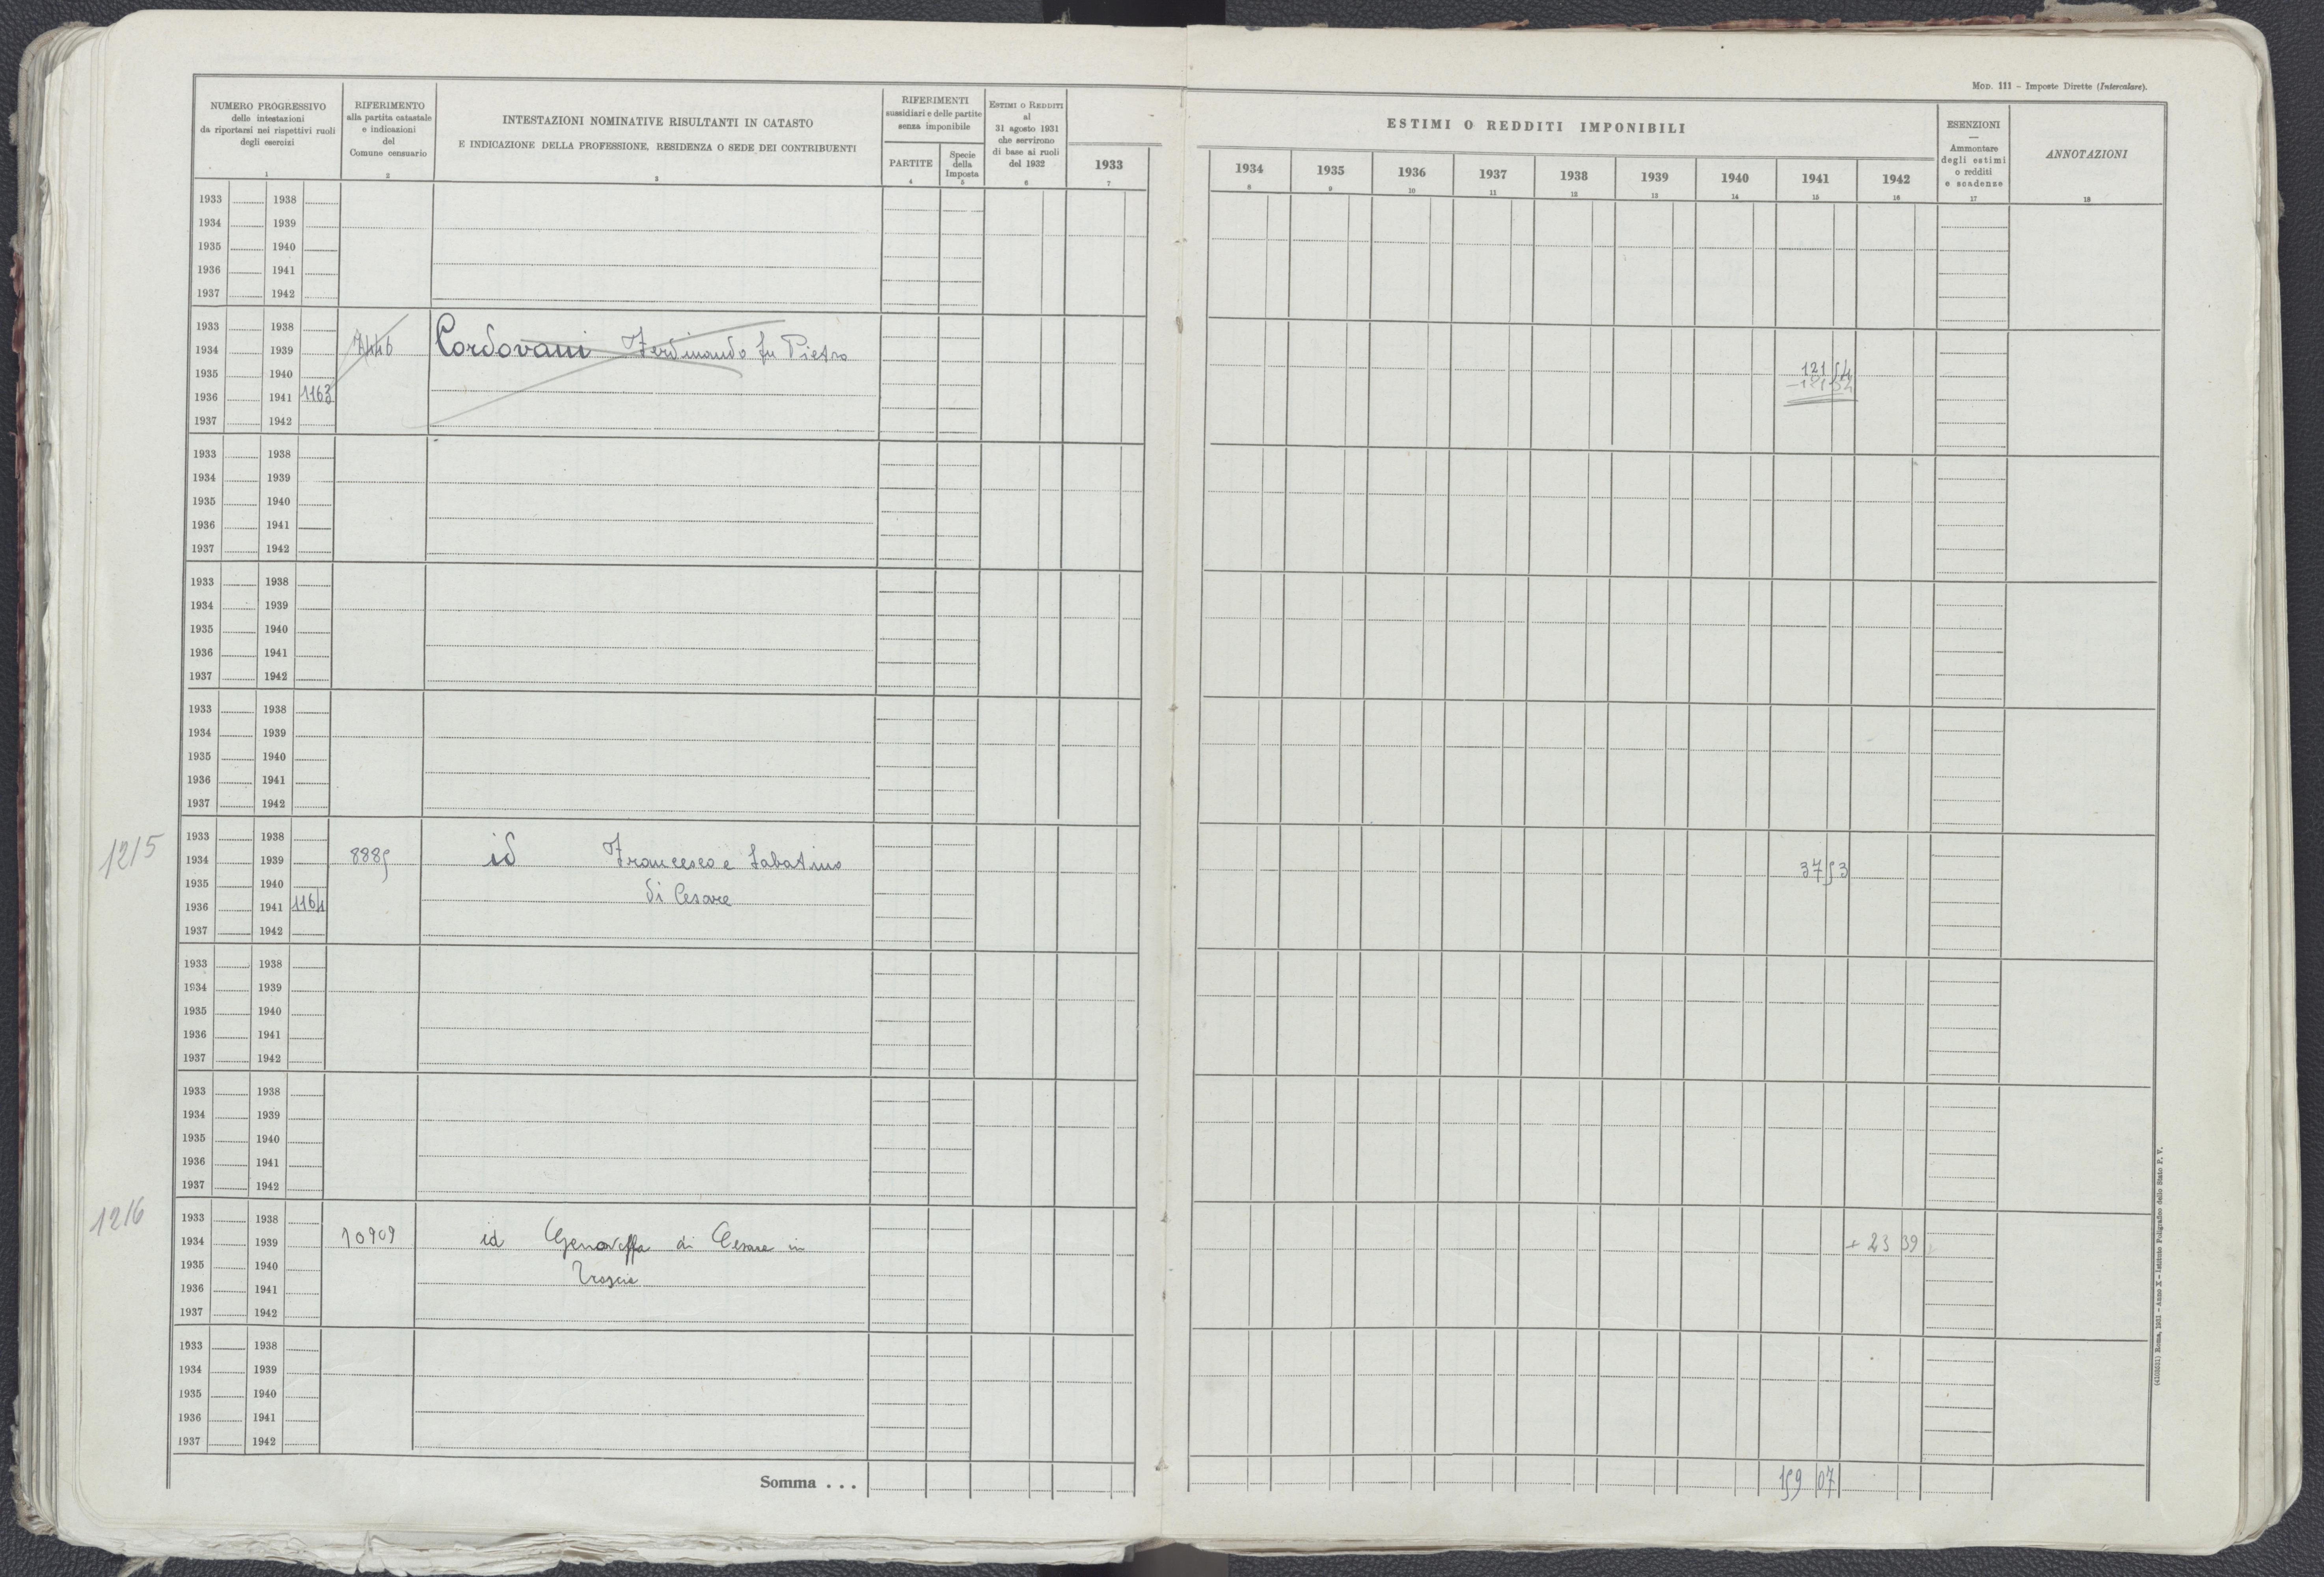 Mod. 111 – Imposte Dirette (Intercalare).
NUMERO PROGRESSIVO
delle intestazioni
da riportarsi nei rispettivi ruoli
degli esercizi
1
RIFERIMENTO
alla partita catastale
e indicazioni
del
Comune censuario
2
INTESTAZIONI NOMINATIVE RISULTANTI IN CATASTO
E INDICAZIONE DELLA PROFESSIONE, RESIDENZA O SEDE DEI CONTRIBUENTI
3
RIFERIMENTI
sussidiari e delle partite
senza imponibile
PARTITE
4
Specie
della
Imposta
5
Estimi o Redditi
al
31 agosto 1931
che servirono
di base ai ruoli
del 1932
6
1933
7
ESTIMI O REDDITI IMPONIBILI
1934 1935 1936 1937 1938 1939 1940 1941 1942
8 9 10 11 12 13 14 15 16
ESENZIONI
—
Ammontare
degli estimi
o redditi
e scadenze
17
ANNOTAZIONI
18
1933 1938
1934 1939
1935 1940
1936 1941
1937 1942
1933 1938
1934 1939 7446 Cordovani Ferdinando fu Pietro
1935 1940 121 54
1936 1941 1163 – 121 54
1937 1942
1933 1938
1934 1939
1935 1940
1936 1941
1937 1942
1933 1938
1934 1939
1935 1940
1936 1941
1937 1942
1933 1938
1934 1939
1935 1940
1936 1941
1937 1942
1215
1933 1938
1934 1939 8885 id Francesco e Sabatino 37 53
1935 1940
1936 1941 1164 di Cesare
1937 1942
1933 1938
1934 1939
1935 1940
1936 1941
1937 1942
1933 1938
1934 1939
1935 1940
1936 1941
1937 1942
1216
1933 1938
1934 1939 10909 id Genoveffa di Cesare in + 23 39
1935 1940
1936 1941
1937 1942
1933 1938
1934 1939
1935 1940
1936 1941
1937 1942
Somma . . . 159 07
Roma, 1931 – Anno X – Istituto Poligrafico dello Stato P. V.